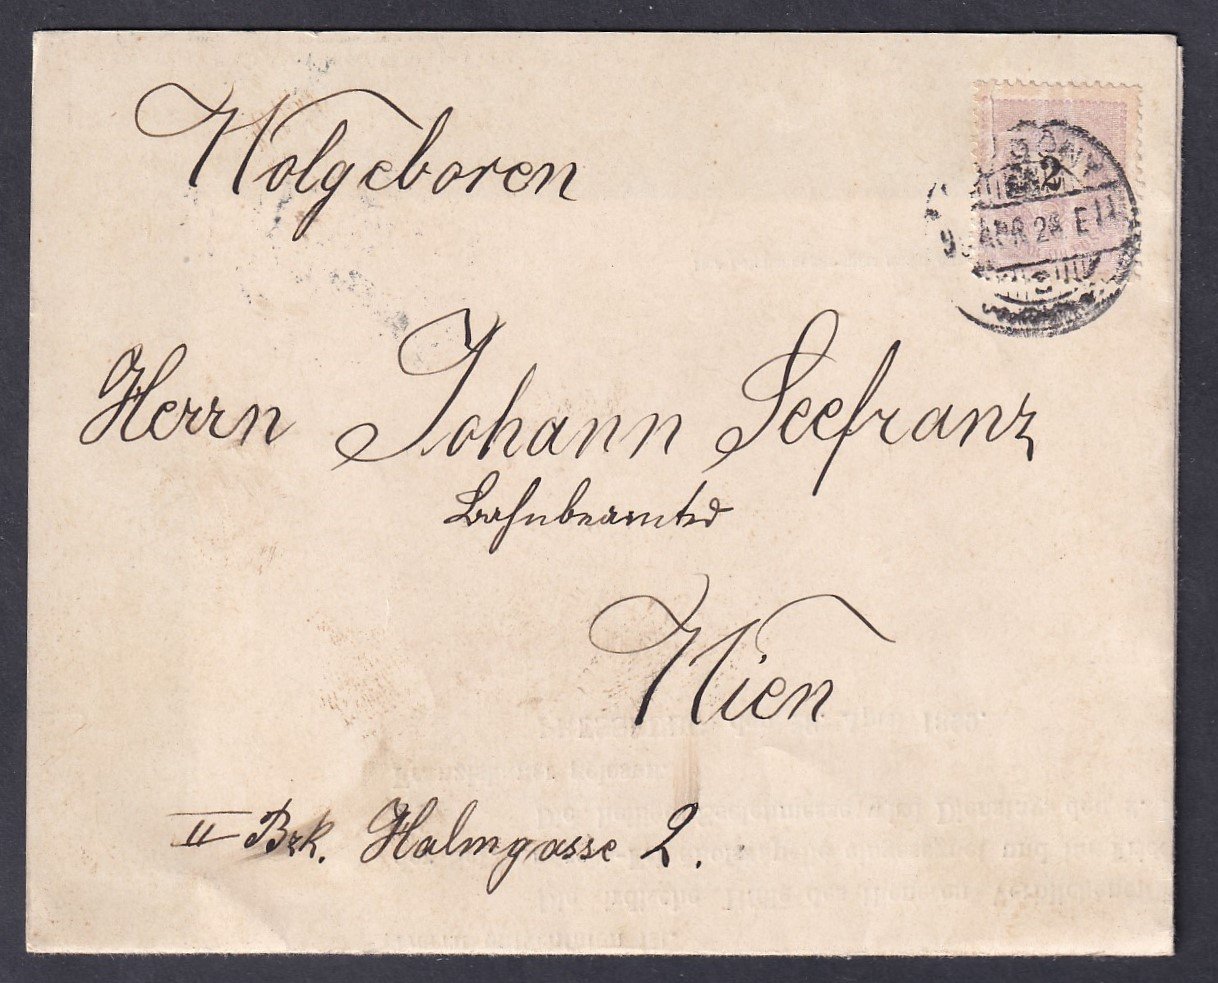 Wolgeboren
Herrn Johann Seefranz
Bahnbeamter
Wien
II Bzk. Halmgasse 2.
2
APR 24 E 11